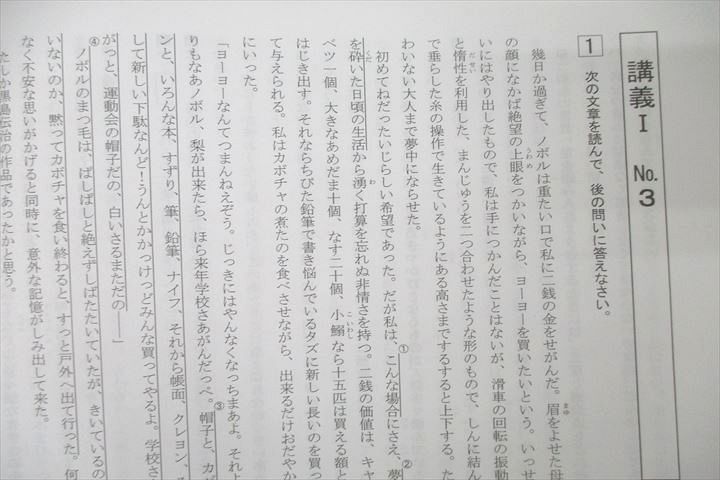 講義Ⅰ No.3
1 次の文章を読んで、後の問いに答えなさい。
幾日か過ぎて、ノボルは重たい口で私に二銭の金をせがんだ。眉をよせた母
まゆ
の顔になかば絶望の上眼をつかいながら、ヨーヨーを買いたいという。いっせ
うわめ
いにはやり出したもので、私は手につかんだことはないが、滑車の回転の振動
と惰性を利用した、まんじゅうを二つ合わせたような形のもので、しんに結ん
だせい
で垂らした糸の操作で生きているようにある高さまでするすると上下する。た
わいない大人まで夢中にならせた。
初めてねだったいじらしい希望であった。だが私は、こんな場合にさえ、夢
①
②
を砕いた日頃の生活から湧く打算を忘れぬ非情さを持つ。二銭の価値は、キャ
くだ
わ
ベツ一個、大きなあめだま十個、なす二十個、小鰯なら十五匹は買える額と
こいわし
はじき出す。それならちびた鉛筆で書き悩んでいるタズに新しい長いのを買っ
て与えられる。私はカボチャの煮たのを食べさせながら、出来るだけおだやか
にいった。
「ヨーヨーなんてつまんねえぞう。じっきにはやんなくなっちまあよ。それよ
りもなあノボル、梨が出来たら、ほら来年学校さあがんだっぺ。帽子と、カバ
③
ンと、いろんな本、すずり、筆、鉛筆、ナイフ、それから帳面、クレヨン、
して新しい下駄なんど！うんとかかっけっどみんな買ってやるよ。学校さ
がっと、運動会の帽子だの、白いさるまただの――」
④
ノボルのまつ毛は、ぱしぱしと絶えずしばたたいていたが、きいているの
いないのか、黙ってカボチャを食い終わると、すっと戸外へ出て行った。何
なく不安な思いがかげると同時に、意外な記憶がしみ出して来た。
たしか黒島伝治の作品であったかと思う。